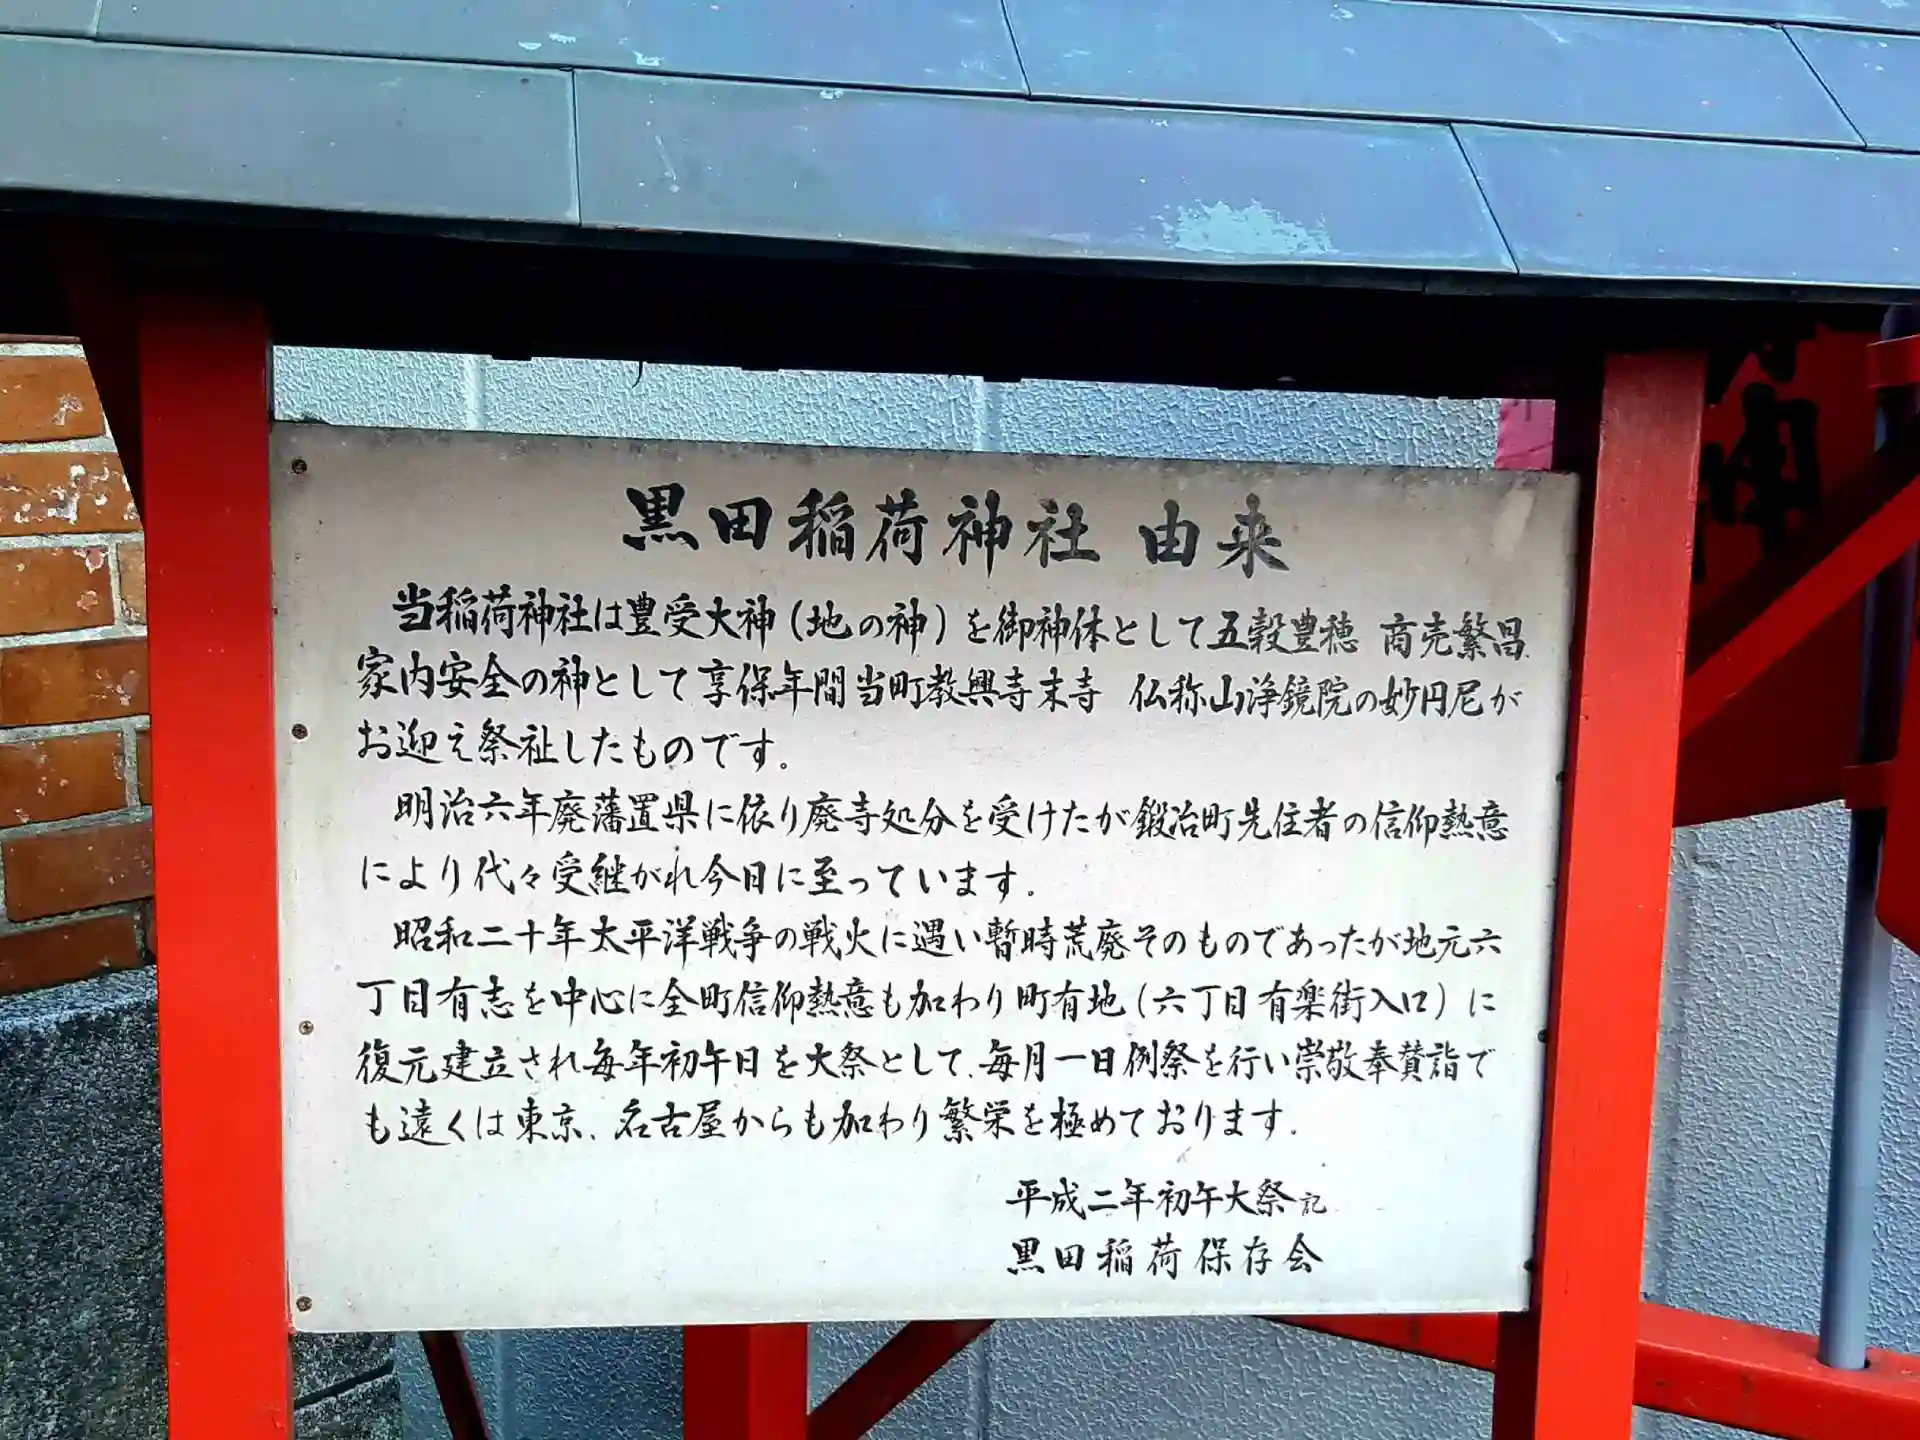 黒田稲荷神社 由来
当稲荷神社は豊受大神(地の神)を御神体として五穀豊穂 商売繁昌
家内安全の神として享保年間当町教興寺末寺 仏称山浄鏡院の妙円尼が
お迎え祭祉したものです。
明治六年廃藩置県に依り廃寺処分を受けたが鍛冶町先住者の信仰熱意
により代々受継がれ今日に至っています。
昭和二十年太平洋戦争の戦火に遇い暫時荒廃そのものであったが地元六
丁目有志を中心に全町信仰熱意も加わり町有地(六丁目有楽街入口)に
復元建立され毎年初午日を大祭として、毎月一日例祭を行い崇敬奉賛詣で
も遠くは東京、名古屋からも加わり繁栄を極めております。
平成二年初午大祭記
黒田稲荷保存会
神